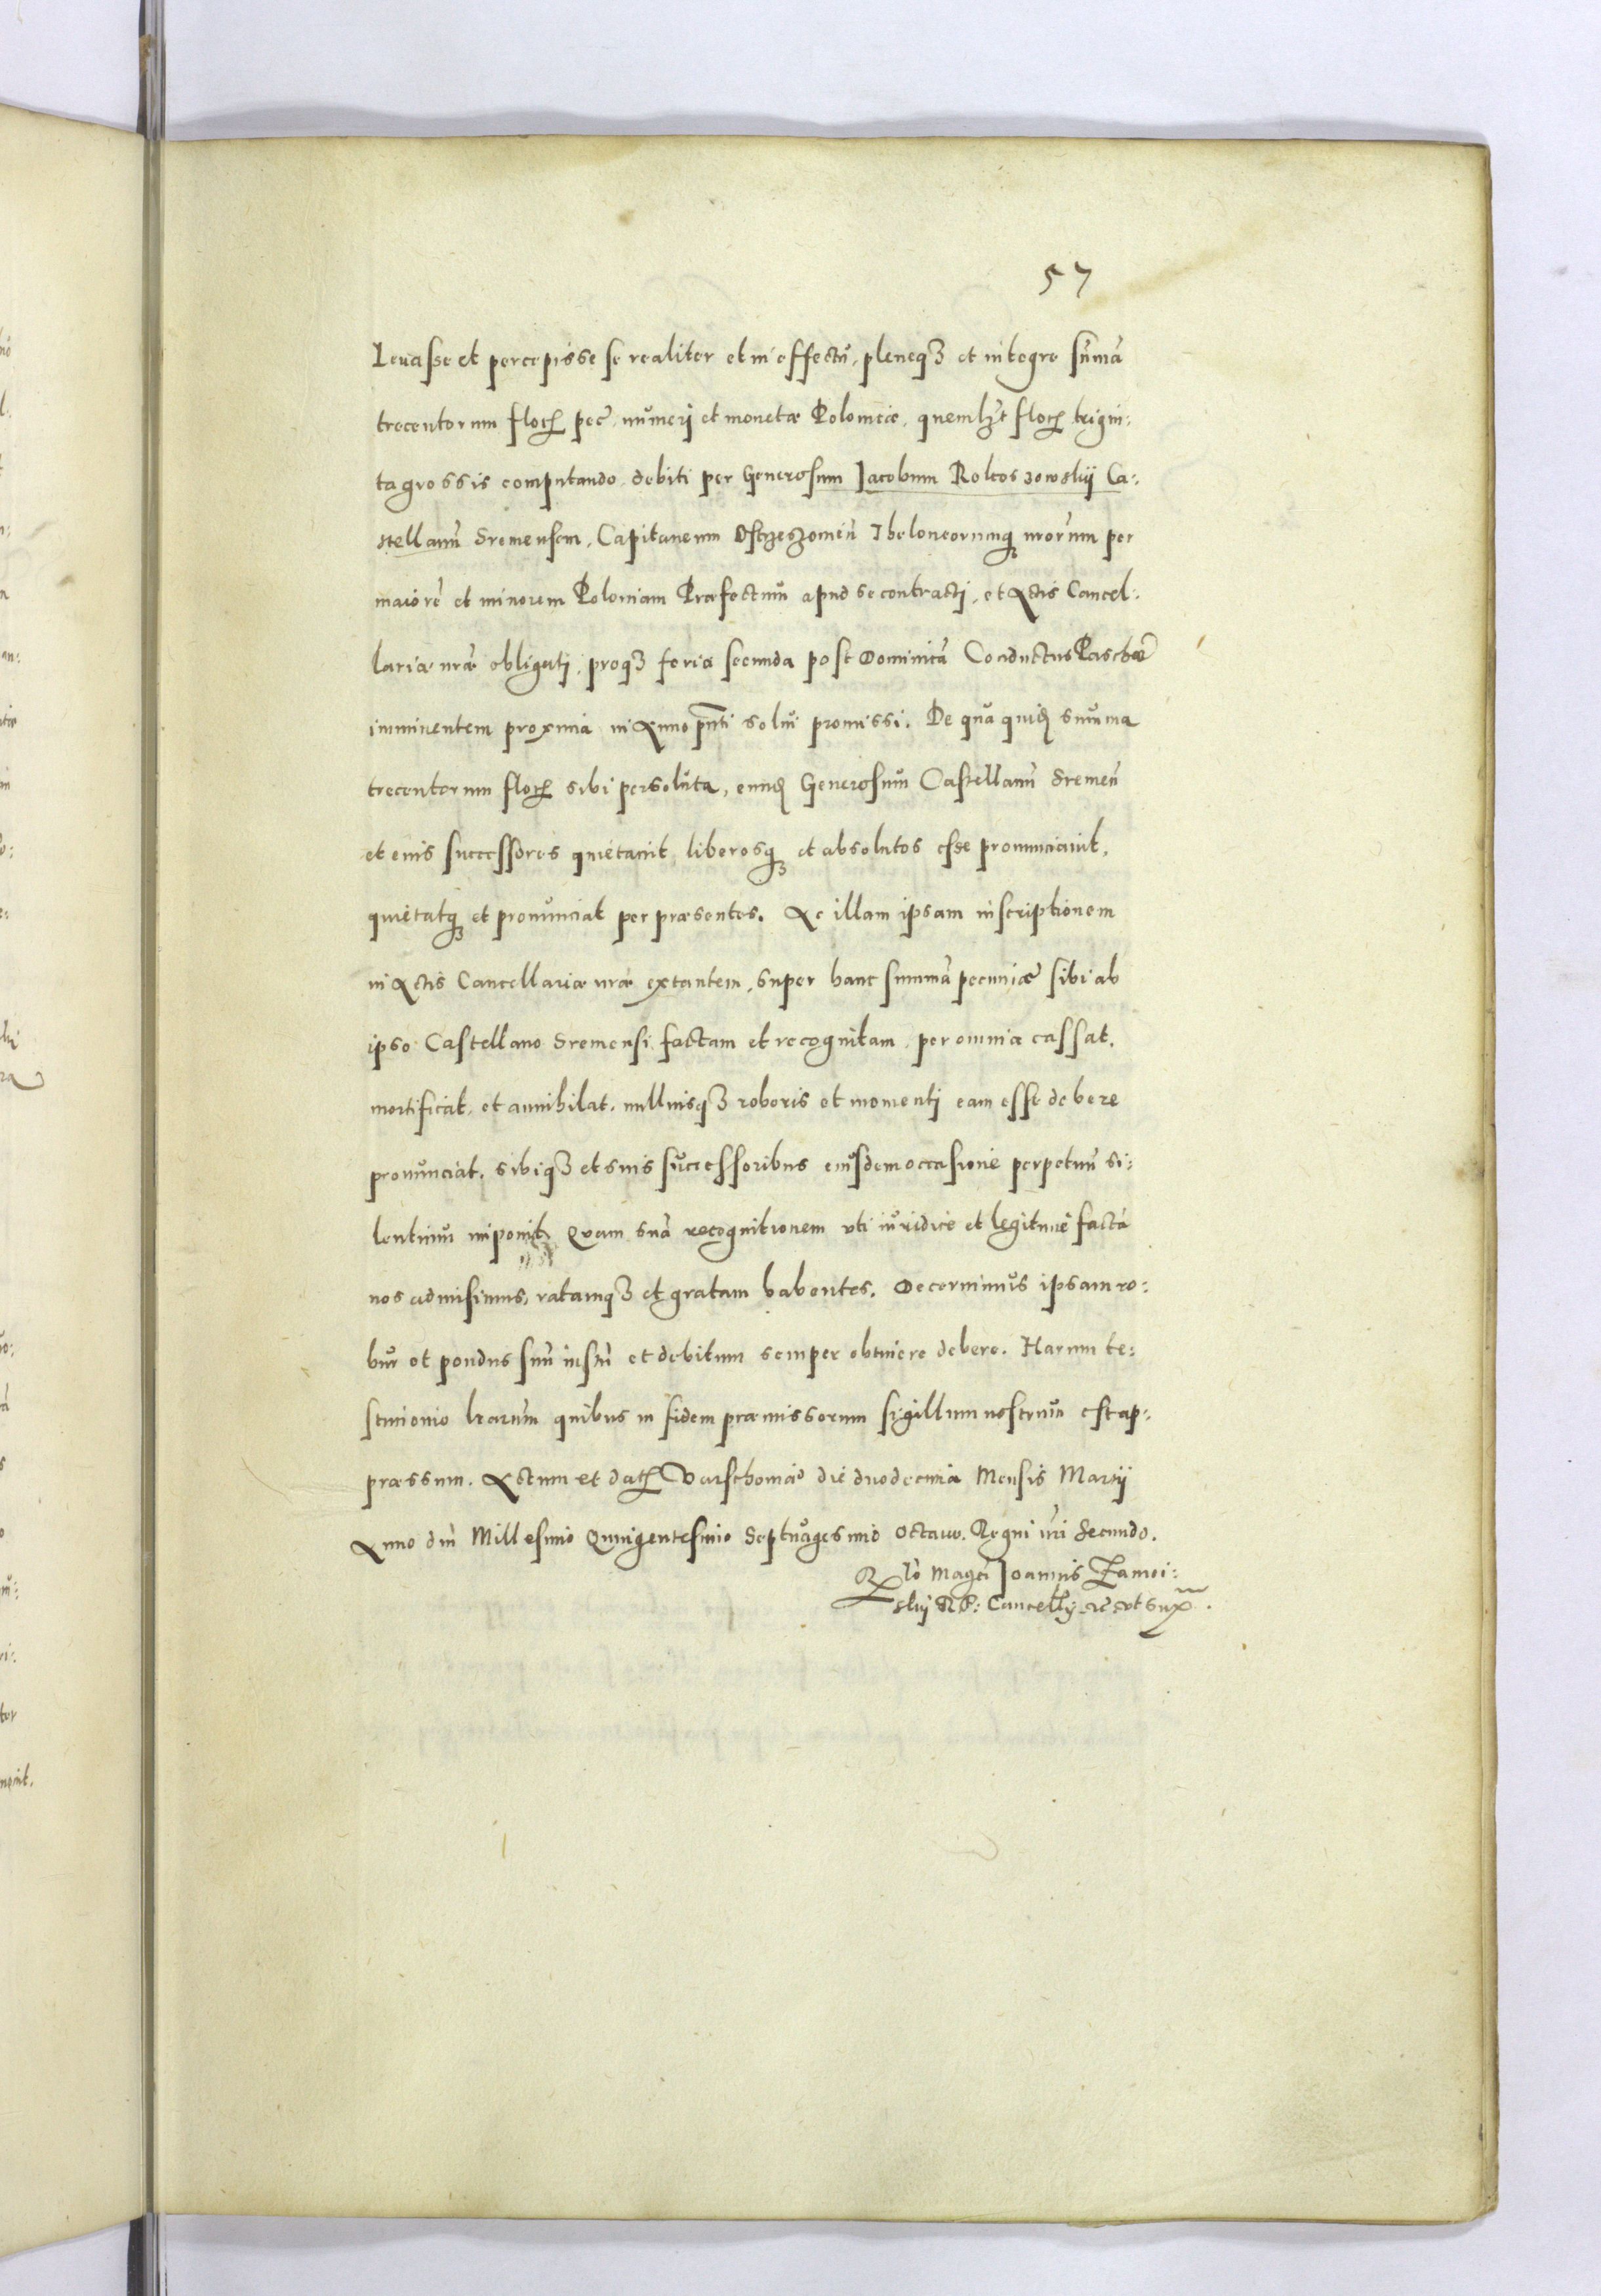 57
Levasse et percepisse se realiter et in effectu, pleneqꝫ et integre sum̃ã
trecentorum floꝝ pec̃. numeri et monetæ Polonicæ, quemlꝫt floꝝ trigin:
ta grossis computando debiti per Generosum Jacobum Rokoszowskij Ca:
stellanũ Sremensem, Capitaneum Ostrzeszowieñ Theloneorumqꝫ nr̃orum per
maiorẽ et minorem Poloniam Præfectum apud se contracti, et Actis Cancel:
lariæ nr̃æ obligati, proqꝫ feria secunda post Dominicã Conductus Paschæ
imminentem proxima in Anno pñti solui promissi. De qua quidẽ summa
trecentorum floꝝ sibi persoluta, eundẽ Generosum Castellanũ Sremeñ
et eius successores quietauit, liberosqꝫ et absolutos esse pronunciauit,
quietatqꝫ et pronunciat per præsentes. Ac illam ipsam inscriptionem
in Actis Cancellariæ nr̃æ extantem, super hanc summã pecuniæ sibi ab
ipso Castellano Sremensi factam et recognitam, per omnia cassat,
mortificat, et annihilat, nulliusqꝫ roboris et momenti eam esse debere
pronunciat, sibiqꝫ et suis successoribus eiusdem occasione perpetuũ si:
lentium imponit, Quam suã recognitionem uti iuridice et legitime factã
nos admisimus, ratamqꝫ et gratam habentes. Decernimus ipsam ro:
bur et pondus suũ iustũ et debitum semper obtinere debere. Harum te:
stimonio lr̃arum quibus in fidem præmissorum sigillum nostrum est ap:
præssum. Actum et datꝝ Varschouiæ die duodecima Mensis Martij
Anno dnĩ Millesimo Quingentesimo Septuagesimo octauo. Regni nr̃i Secundo.
Rlõ Magci Joannis Zamoi:
skij R P: Cancellrij etc ut supra.